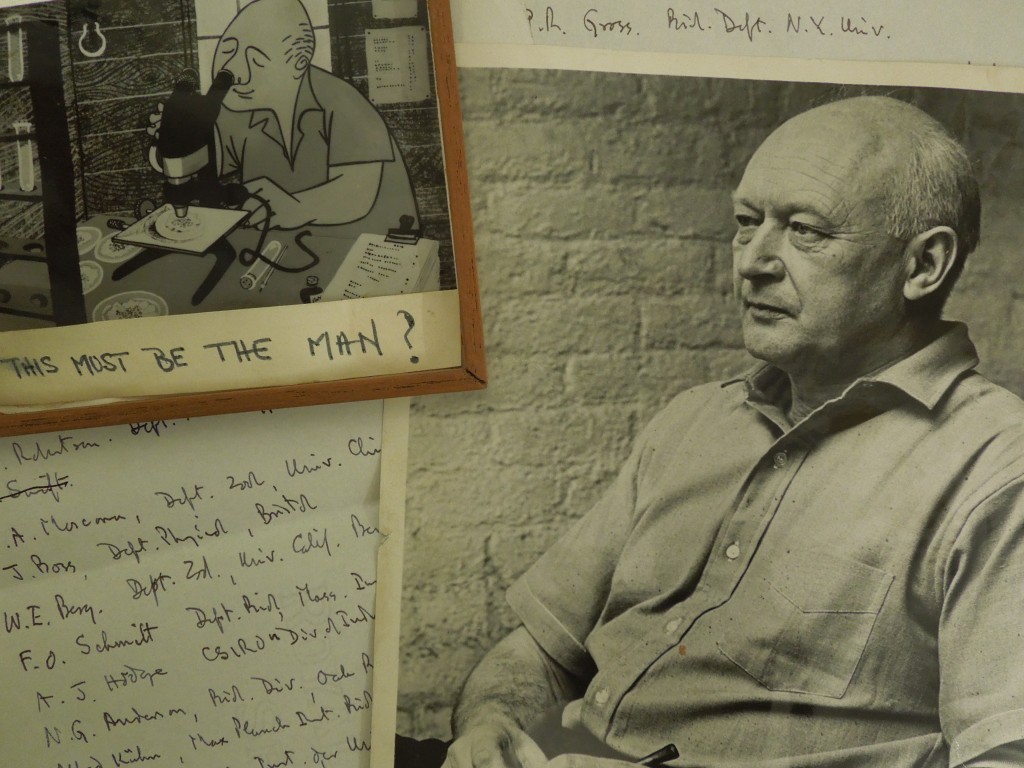 P.R. Gross. Biol. Dept. N.Y. Univ.
THIS MOST BE THE MAN?
. Robertson. Dept.
Swift.
.A. Moscona, Dept. Zool, Univ. Chi
J. Boss, Dept. Physiol, Bristol
W.E. Berg. Dept. Zool., Univ. Calif. Ber
F.O. Schmitt Dept. Biol, Mass. In
A. J. Hodge CSIRO Div. of Ind
N.G. Anderson, Biol. Div., Oak R
Alfred Kühn, Max Planck Inst. Biol
Inst. der Un